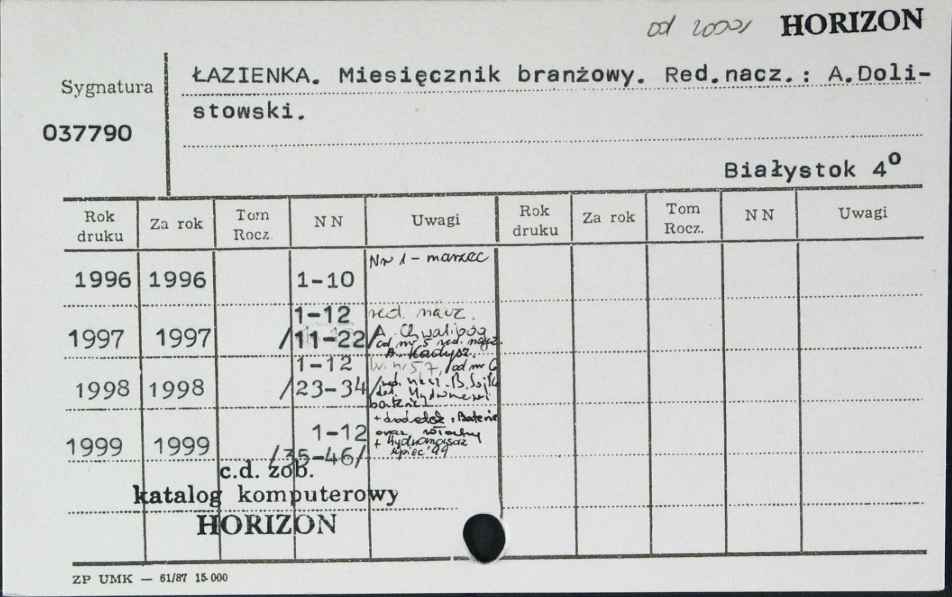 od 2000r HORIZON
Sygnatura
037790
ŁAZIENKA. Miesięcznik branżowy. Red.nacz.: A.Doli-
stowski.
Białystok 4º
Rok druku Za rok Tom Rocz. NN Uwagi Rok druku Za rok Tom Rocz. NN Uwagi
1996 1996 1-10 Nr 1 - marzec
1-12 red. nacz.
1997 1997 /11-22/ A. Chwalibóg
od nr 5 red. nacz.
A. Kadysz.
1-12 od nr 6
1998 1998 /23-34/ red. nacz. B.
1999 1999 1-12
/35-46/ lipiec '99
c.d. zob.
katalog komputerowy
HORIZON
ZP UMK — 61/87 15.000